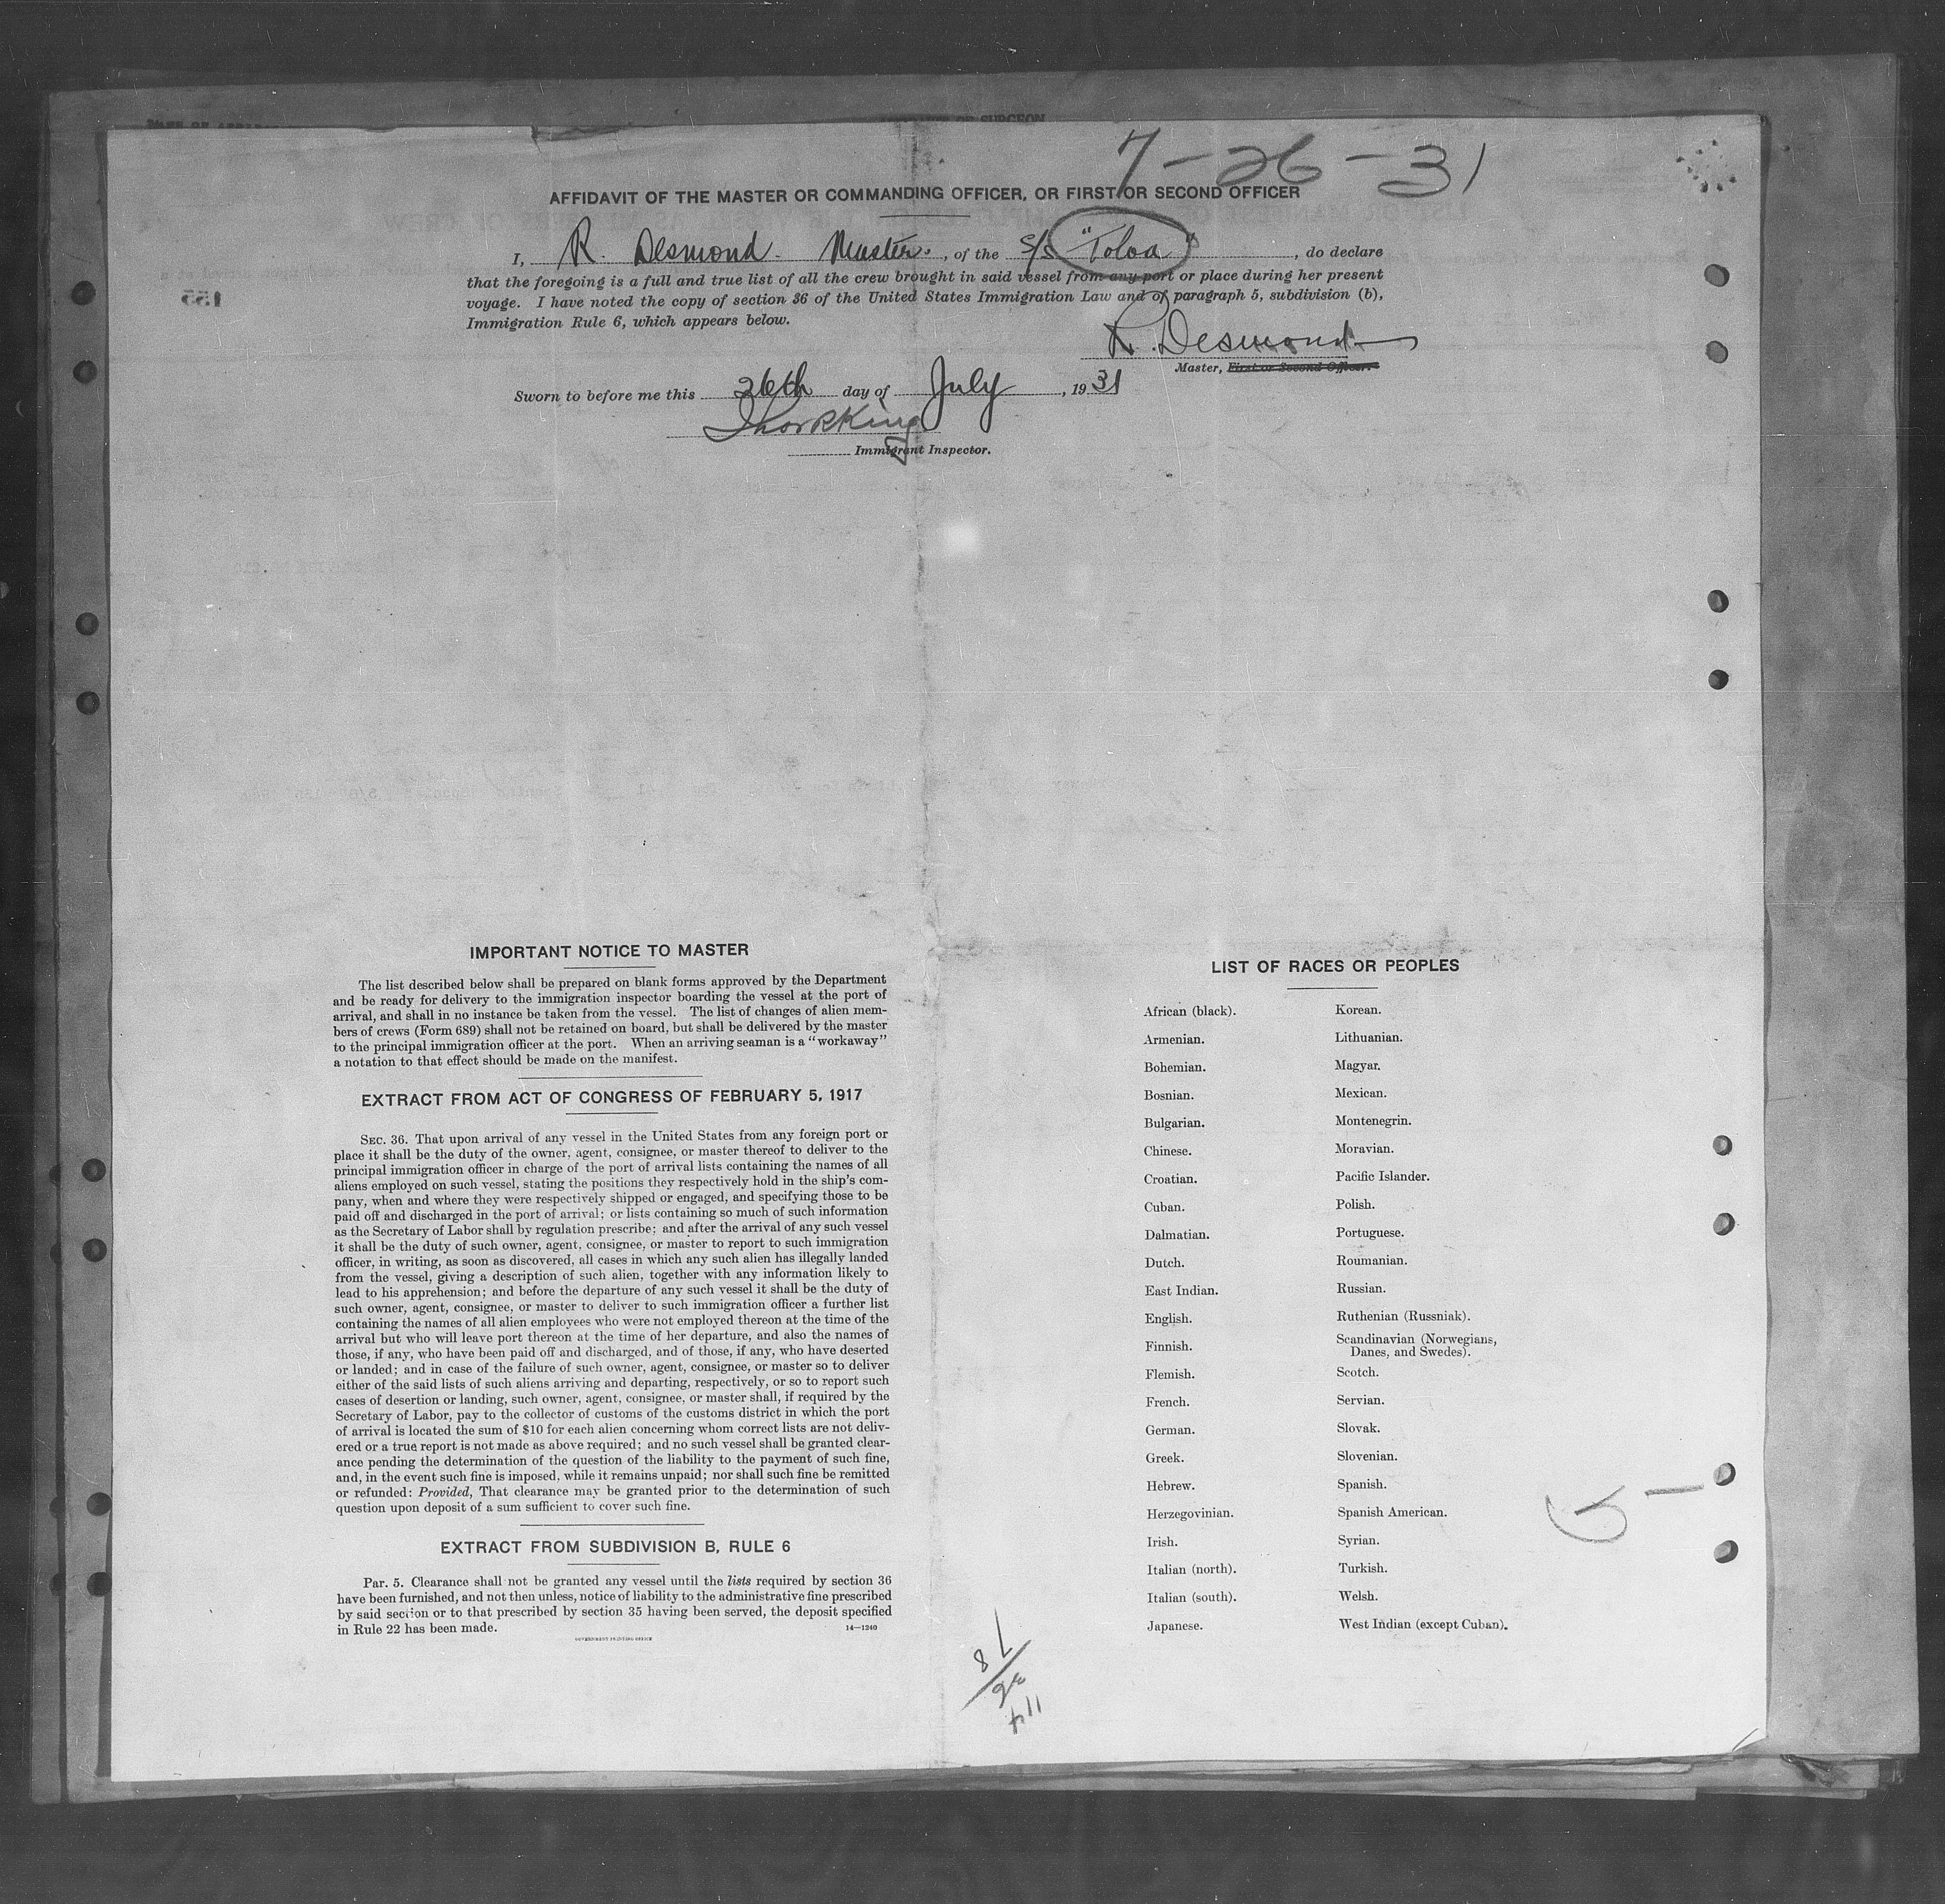 7-26-31
AFFIDAVIT OF THE MASTER OR COMMANDING OFFICER, OR FIRST OR SECOND OFFICER
I, R. Desmond. Master, of the S/S "Toloa", do declare
that the foregoing is a full and true list of all the crew brought in said vessel from any port or place during her present
voyage. I have noted the copy of section 36 of the United States Immigration Law and of paragraph 5, subdivision (b),
Immigration Rule 6, which appears below.
R. Desmond
Master, First or Second Officer.
Sworn to before me this 26th day of July, 1931
Immigrant Inspector.
IMPORTANT NOTICE TO MASTER
The list described below shall be prepared on blank forms approved by the Department
and be ready for delivery to the immigration inspector boarding the vessel at the port of
arrival, and shall in no instance be taken from the vessel. The list of changes of alien mem-
bers of crews (Form 689) shall not be retained on board, but shall be delivered by the master
to the principal immigration officer at the port. When an arriving seaman is a "workaway"
a notation to that effect should be made on the manifest.
EXTRACT FROM ACT OF CONGRESS OF FEBRUARY 5, 1917
SEC. 36. That upon arrival of any vessel in the United States from any foreign port or
place it shall be the duty of the owner, agent, consignee, or master thereof to deliver to the
principal immigration officer in charge of the port of arrival lists containing the names of all
aliens employed on such vessel, stating the positions they respectively hold in the ship's com-
pany, when and where they were respectively shipped or engaged, and specifying those to be
paid off and discharged in the port of arrival; or lists containing so much of such information
as the Secretary of Labor shall by regulation prescribe; and after the arrival of any such vessel
it shall be the duty of such owner, agent, consignee, or master to report to such immigration
officer, in writing, as soon as discovered, all cases in which any such alien has illegally landed
from the vessel, giving a description of such alien, together with any information likely to
lead to his apprehension; and before the departure of any such vessel it shall be the duty of
such owner, agent, consignee, or master to deliver to such immigration officer a further list
containing the names of all alien employees who were not employed thereon at the time of the
arrival but who will leave port thereon at the time of her departure, and also the names of
those, if any, who have been paid off and discharged, and of those, if any, who have deserted
or landed; and in case of the failure of such owner, agent, consignee, or master so to deliver
either of the said lists of such aliens arriving and departing, respectively, or so to report such
cases of desertion or landing, such owner, agent, consignee, or master shall, if required by the
Secretary of Labor, pay to the collector of customs of the customs district in which the port
of arrival is located the sum of $10 for each alien concerning whom correct lists are not deliv-
ered or a true report is not made as above required; and no such vessel shall be granted clear-
ance pending the determination of the question of the liability to the payment of such fine,
and, in the event such fine is imposed, while it remains unpaid; nor shall such fine be remitted
or refunded: Provided, That clearance may be granted prior to the determination of such
question upon deposit of a sum sufficient to cover such fine.
EXTRACT FROM SUBDIVISION B, RULE 6
Par. 5. Clearance shall not be granted any vessel until the lists required by section 36
have been furnished, and not then unless, notice of liability to the administrative fine prescribed
by said section or to that prescribed by section 35 having been served, the deposit specified
in Rule 22 has been made.
14—1240
GOVERNMENT PRINTING OFFICE
LIST OF RACES OR PEOPLES
African (black).
Armenian.
Bohemian.
Bosnian.
Bulgarian.
Chinese.
Croatian.
Cuban.
Dalmatian.
Dutch.
East Indian.
English.
Finnish.
Flemish.
French.
German.
Greek.
Hebrew.
Herzegovinian.
Irish.
Italian (north).
Italian (south).
Japanese.
Korean.
Lithuanian.
Magyar.
Mexican.
Montenegrin.
Moravian.
Pacific Islander.
Polish.
Portuguese.
Roumanian.
Russian.
Ruthenian (Russniak).
Scandinavian (Norwegians,
Danes, and Swedes).
Scotch.
Servian.
Slovak.
Slovenian.
Spanish.
Spanish American.
Syrian.
Turkish.
Welsh.
West Indian (except Cuban).
78
36
114